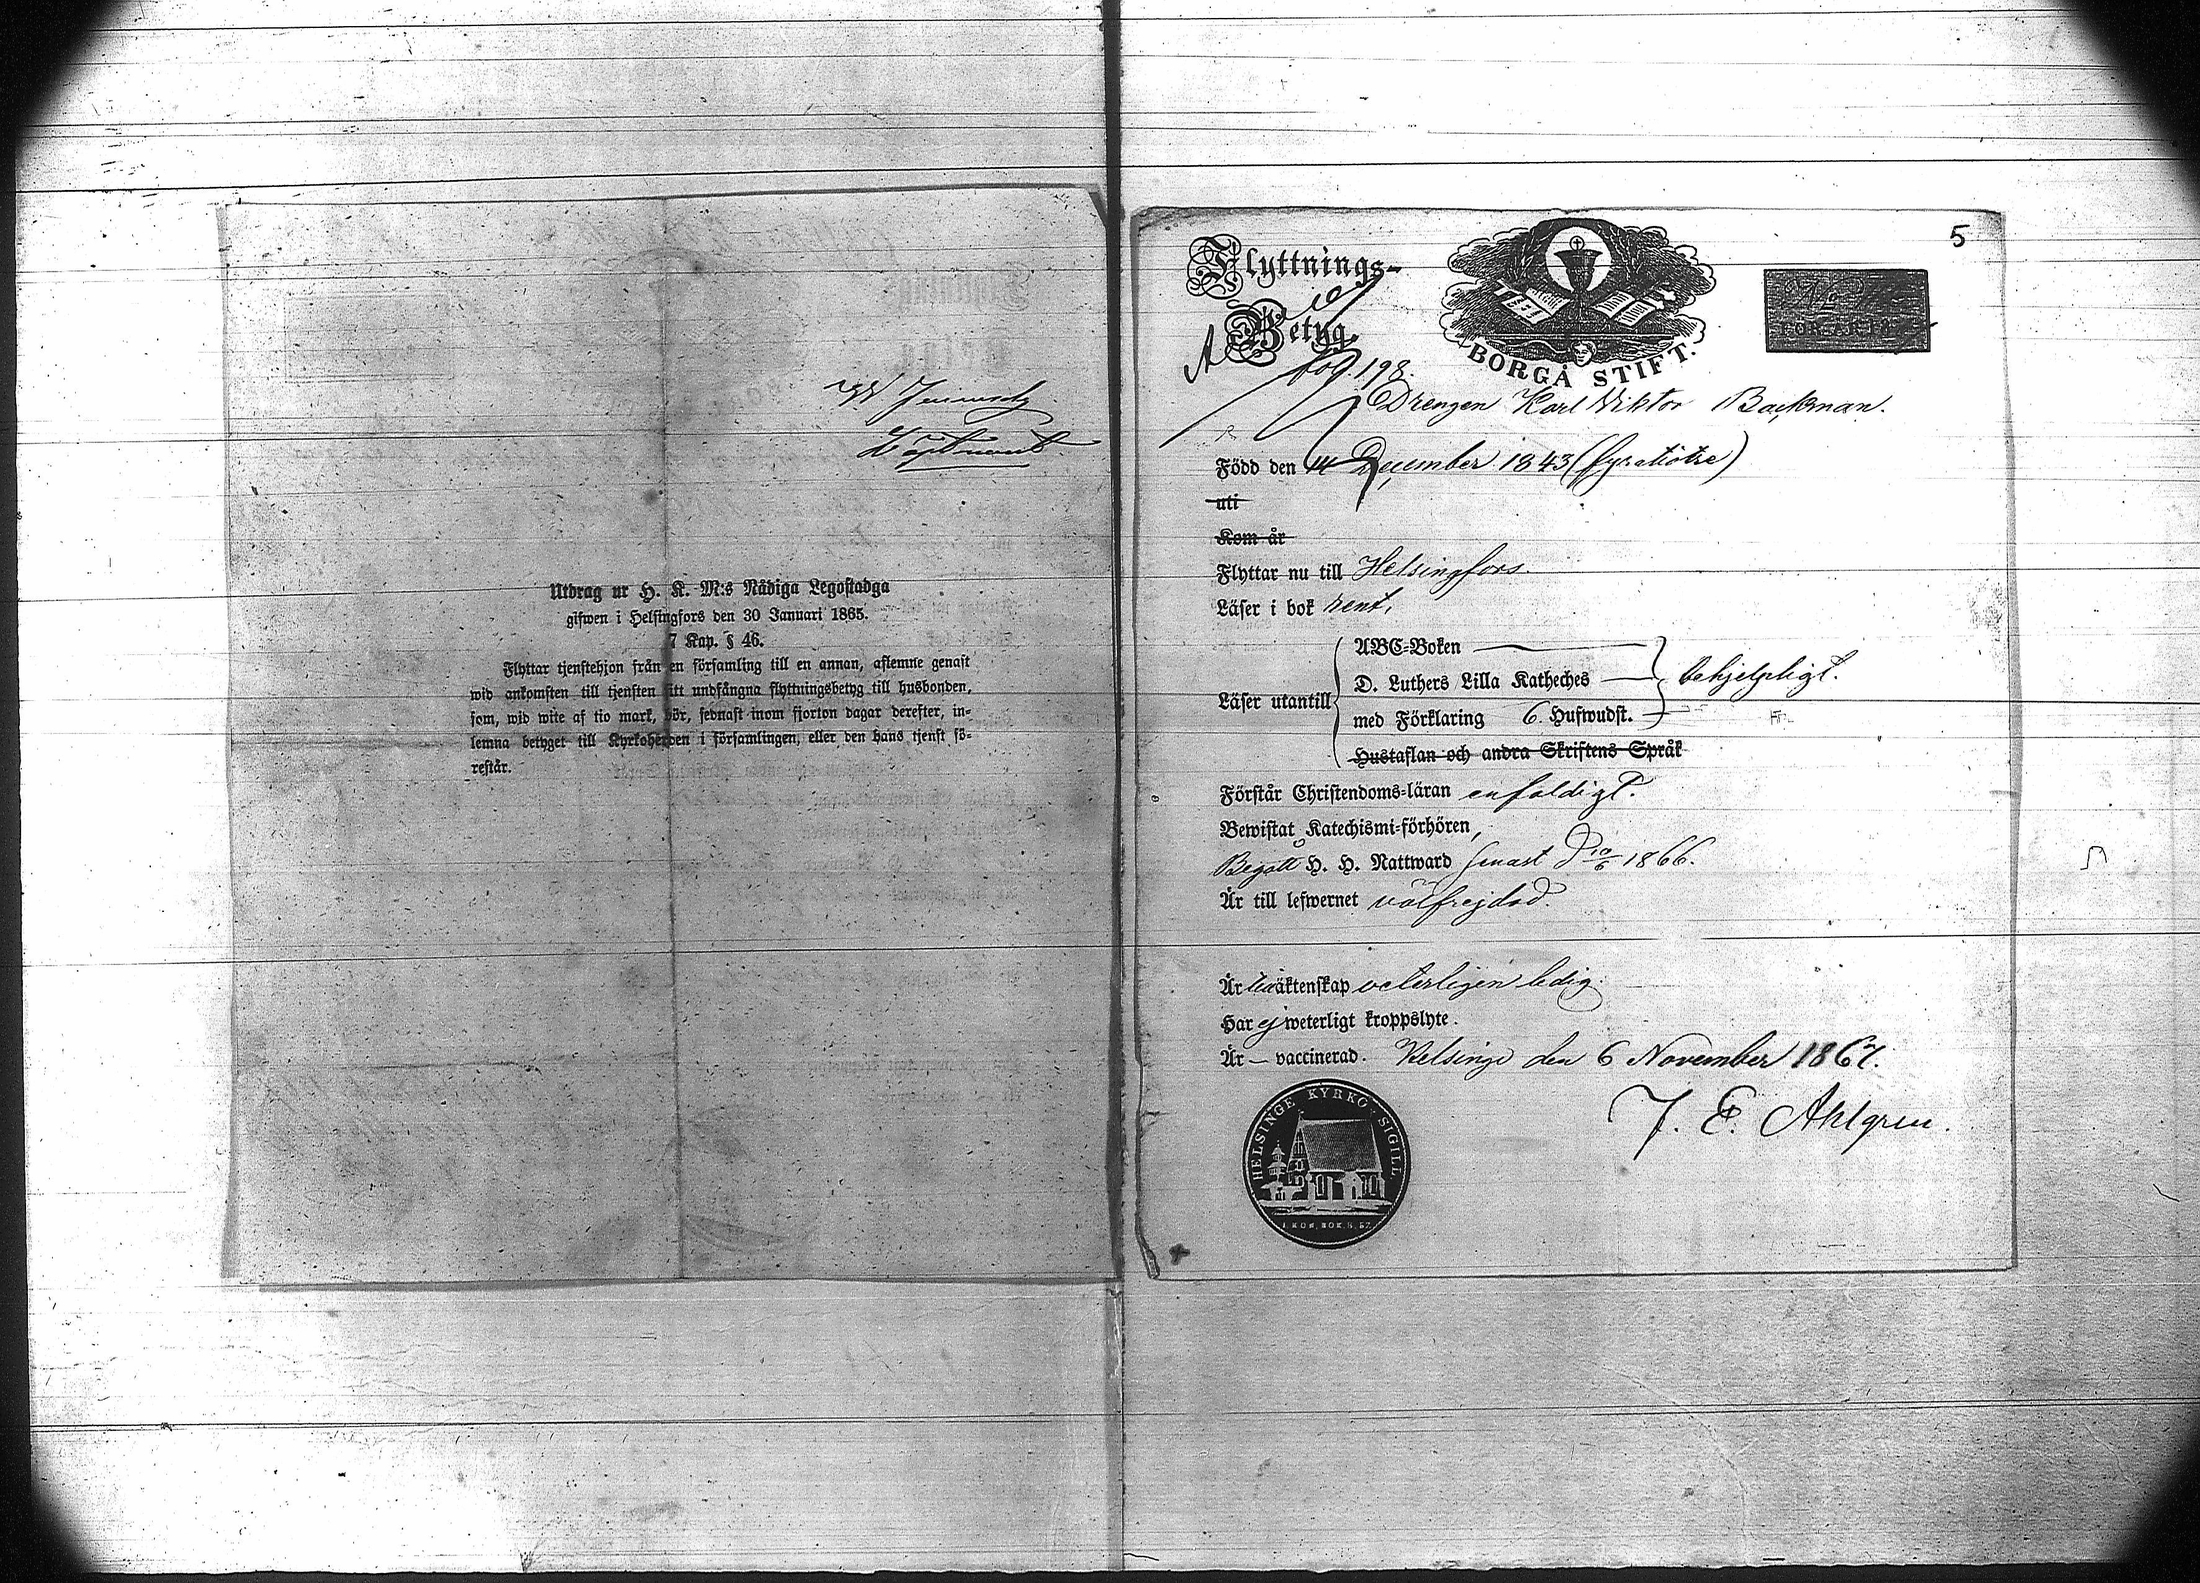 Utdrag ur H. K. M:s Nådiga Legostadga
gifwen i Helsingfors den 30 Januari 1865.
7 Kap. § 46.
Flyttar tjenstehjon från en församling till en annan, aflemne genast
wid ankomsten till tjensten sitt undfångna flyttningsbetyg till husbonden,
som, wid wite af tio mark, bör, sednast inom fjorton dagar derefter, in-
lemna betyget till Kyrkoherden i församlingen, eller den hans tjenst fö-
restår.
5
Flyttnings-
Betyg.
BORGÅ STIFT.
198.
Drengen Karl Viktor Backman.
Född den 14 December 1843 (fyratiotre)
uti
Kom år
Flyttar nu till Helsingfors.
Läser i bok rent,
Läser utantill
ABC-Boken
D. Luthers Lilla Katheches
med Förklaring 6. Hufwudst.
behjelpligt.
Hustaflan och andra Skriftens Språk
Förstår Christendoms-läran enfaldigt.
Bewistat Katechismi-förhören,
Begått H. H. Nattward senast d 10/6 1866.
Är till lefwernet välfrejdad.
Är till äktenskap veterligen ledig.
Har ej weterligt kroppslyte.
Är — vaccinerad. Helsinge den 6 November 1867.
J. E. Ahlgren.
HELSINGE KYRKO SIGILL